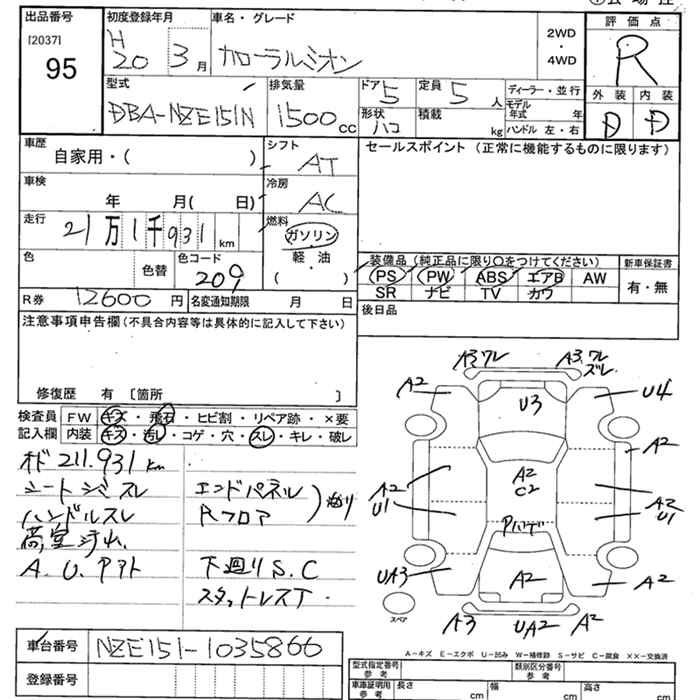 出品番号
[2037]
95
初度登録年月
H
20 3月
車名・グレード
カローラルミオン
2WD
・
4WD
評価点
R
外装 内装
D D
型式
DBA-NZE151N
排気量
1500cc
ドア 5
形状
ハコ
定員 5人
積載 kg
ディーラー・並行
モデル年式 年
ハンドル 左・右
車歴
自家用・( )
シフト
AT
セールスポイント (正常に機能するものに限ります)
車検
年 月( 日)
冷房
AC
走行
21万1千931km
燃料
ガソリン
軽・油
( )
色
色替
色コード
209
装備品 (純正品に限り○をつけてください)
PS PW ABS エアB AW
SR ナビ TV カワ
新車保証書
有・無
R券 12600円
名変通知期限 月 日
後日品
注意事項申告欄 (不具合内容等は具体的に記入して下さい)
修復歴 有 〔箇所 〕
検査員
記入欄
FW キズ・飛石・ヒビ割・リペア跡・×要
内装 キズ・汚れ・コゲ・穴・スレ・キレ・破レ
オド 211.931km
シートシミスレ
ハンドルスレ
荷室汚れ
A.U.アト
エンドパネル
Rフロア
下廻りS.C
スタッドレスT
A3ワレ
A3.ワレ
ズレ
A2
U3
U4
A2
A2
U1
A2
C2
A2
U1
UA3
A2
A2
A3
UA2
A2
スペア
A-キズ E-エクボ U-凹み W-補修跡 S-サビ C-腐食 ××-交換済
車台番号 NZE151-1035866
登録番号
型式指定番号
参考
類別区分番号
参考
車庫証明用
参考
長さ cm
幅 cm
高さ cm